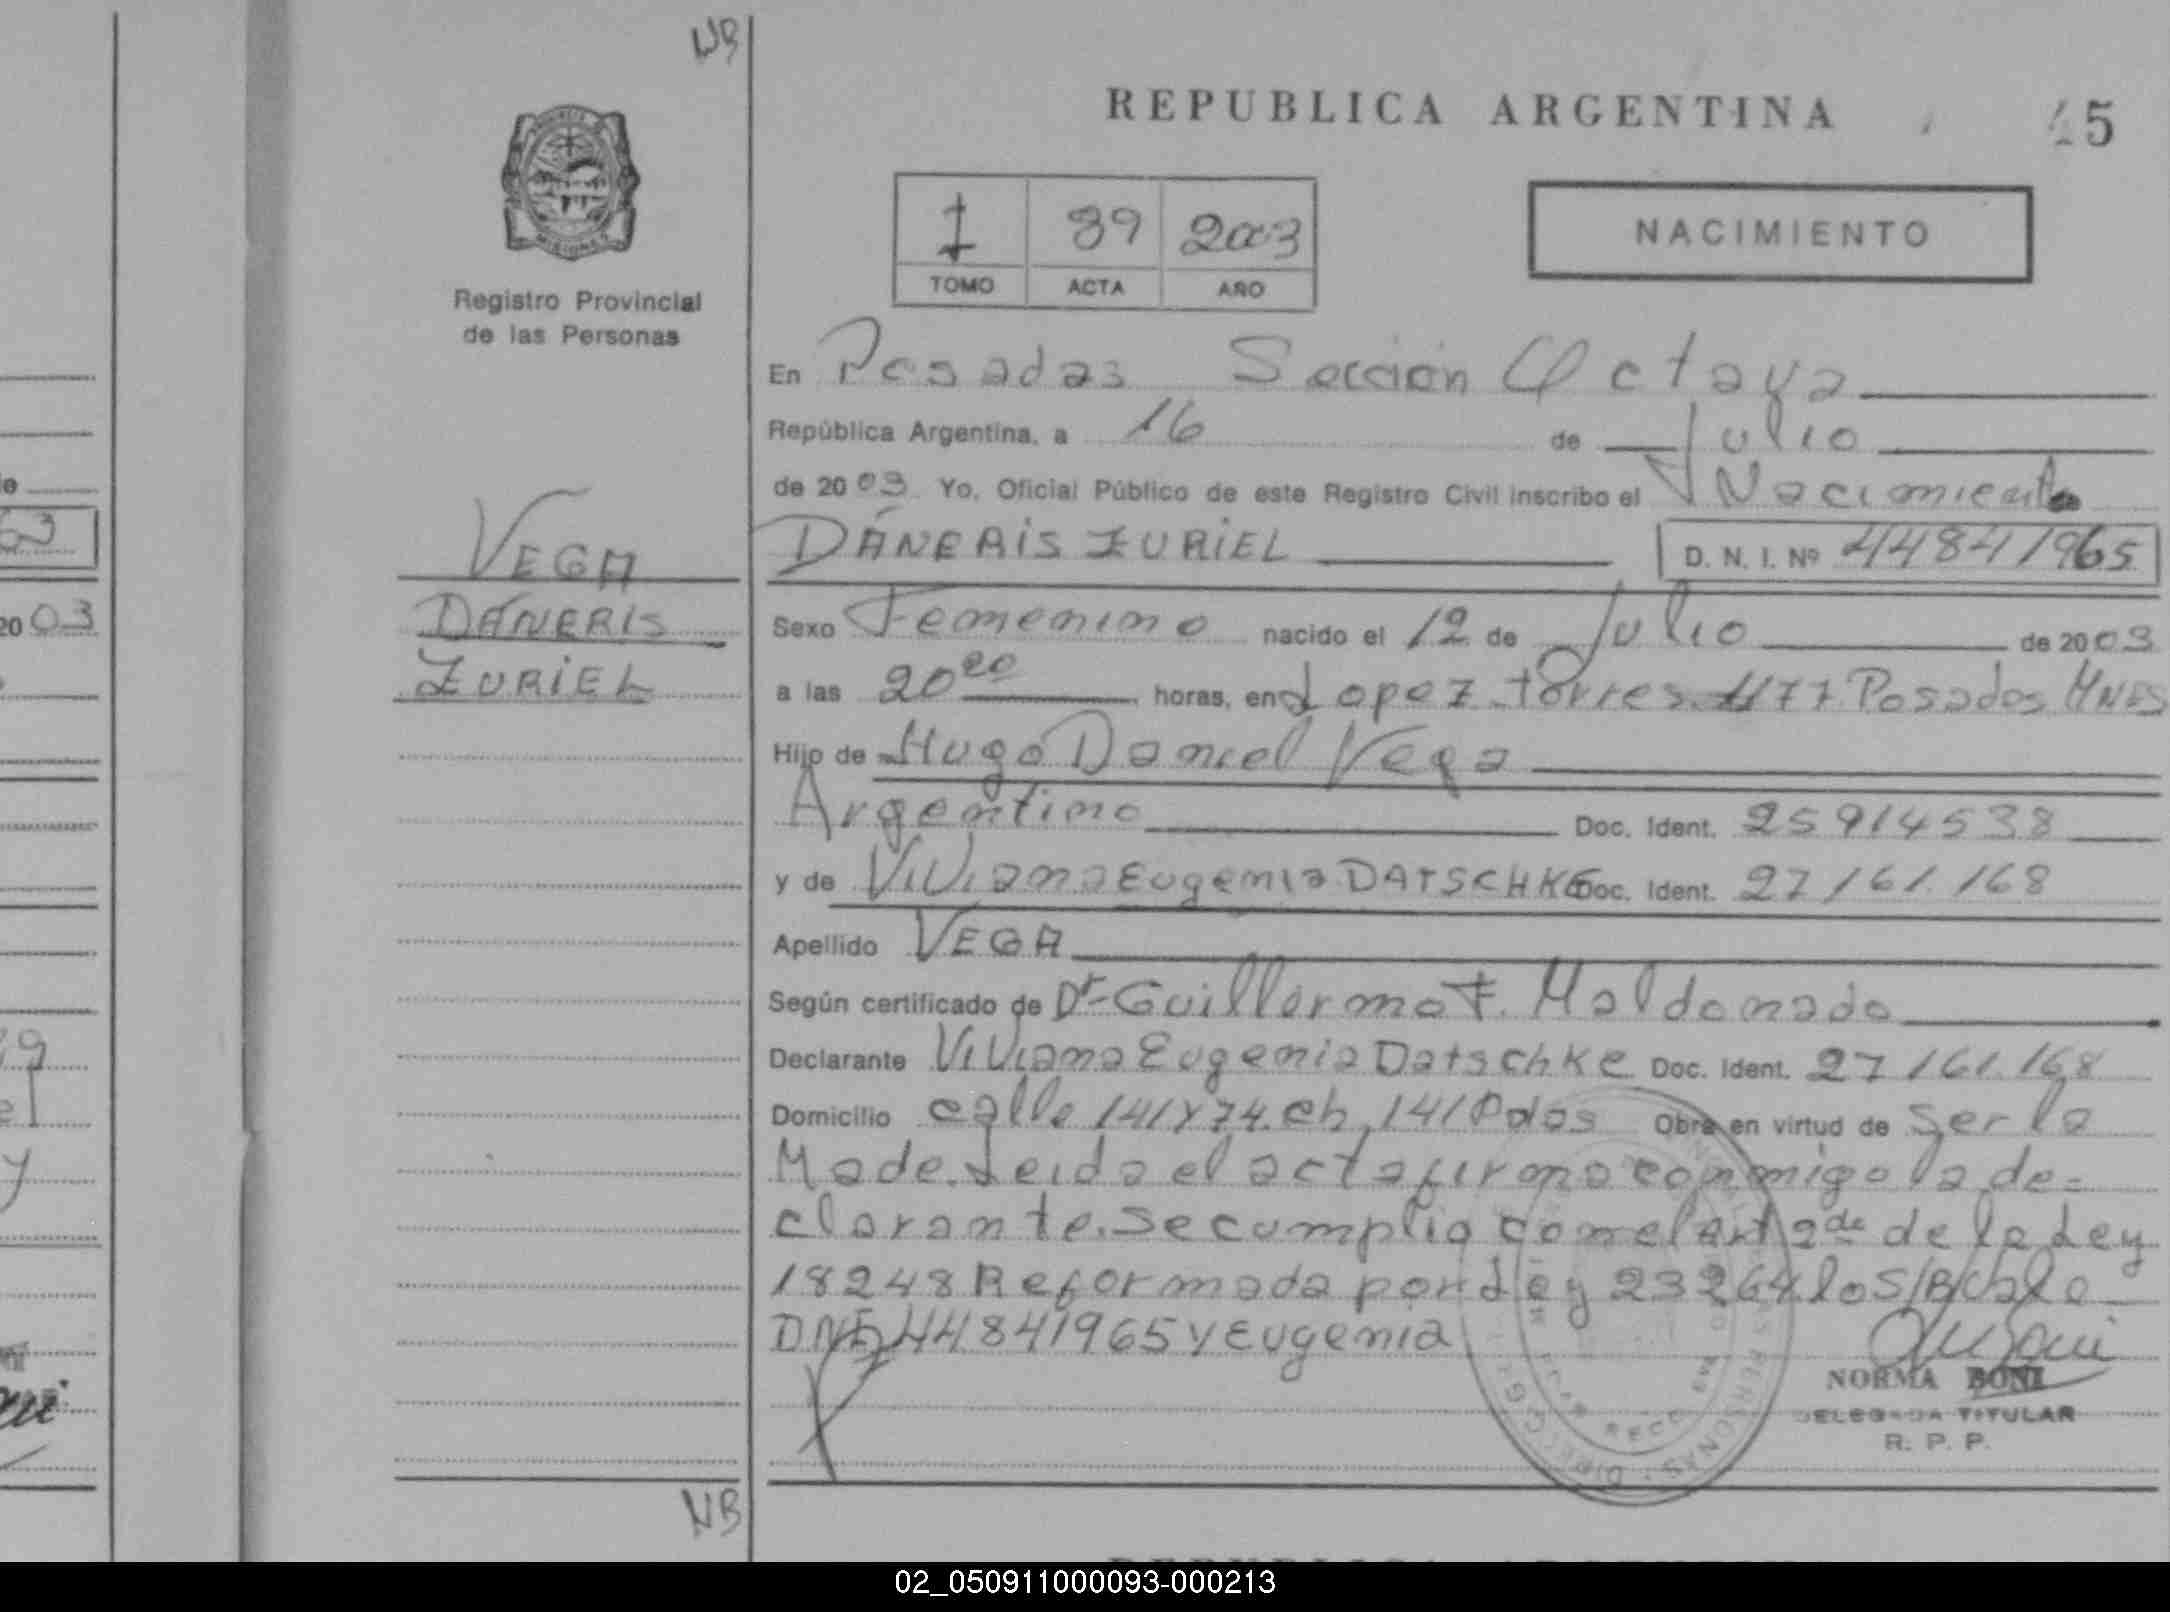 NB
REPUBLICA ARGENTINA
5
MISIONES
Registro Provincial
de las Personas
I 89 2003
TOMO ACTA AÑO
NACIMIENTO
En Posadas Sección Octava
República Argentina, a 16 de Julio
de 2003 Yo, Oficial Público de este Registro Civil inscribo el Nacimiento
DÁNERIS ZURIEL D. N. I. Nº 44841965
VEGA
DÁNERIS
ZURIEL
Sexo Femenino nacido el 12 de Julio de 2003
a las 20 20 horas, en Lopez Torres 1177 Posadas MNES
Hijo de Hugo Daniel Vega
Argentino Doc. Ident. 25914538
y de Viviana Eugenia DATSCHKE Doc. Ident. 27161.168
Apellido VEGA
Según certificado de Dr Guillermo F. Maldonado
Declarante Viviana Eugenia Datschke Doc. Ident. 27161.168
Domicilio calle 141 y 74 ch 141 Pdas Obra en virtud de ser la
Made. Leida el acta firma conmigo la de=
clarante. Se cumplio con el Art 2do de la Ley
18248 Reformada por Ley 23264 lo S/B Vale
DNI 44841965 y Eugenia
NORMA BONI
DELEGADA TITULAR
R. P. P.
NB
03
02_050911000093-000213